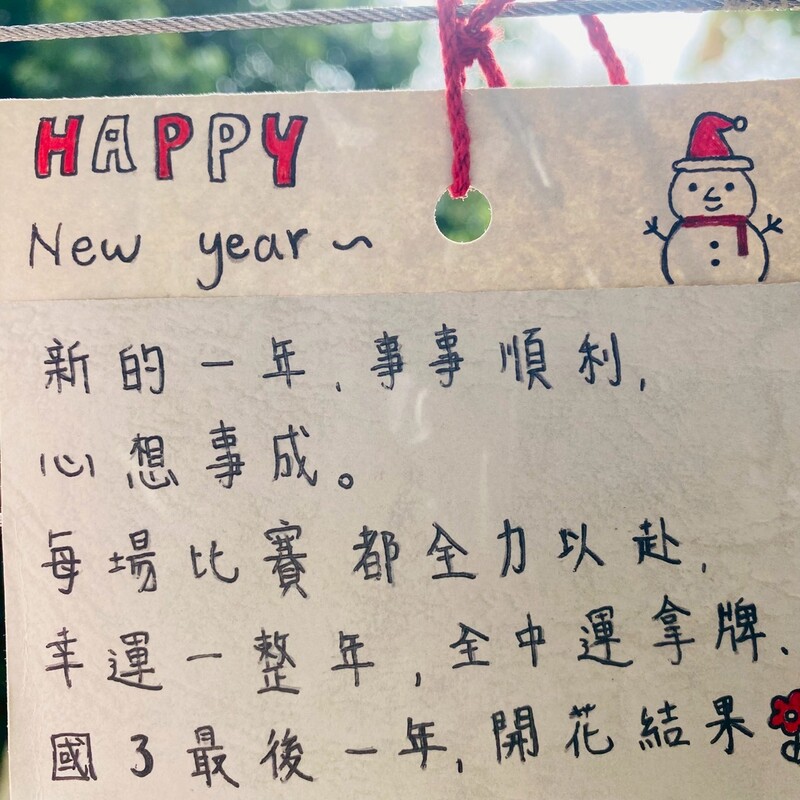 HAPPY
New year~
新的一年,事事順利,
心想事成。
每場比賽都全力以赴,
幸運一整年,全中運拿牌、
國3最後一年,開花結果